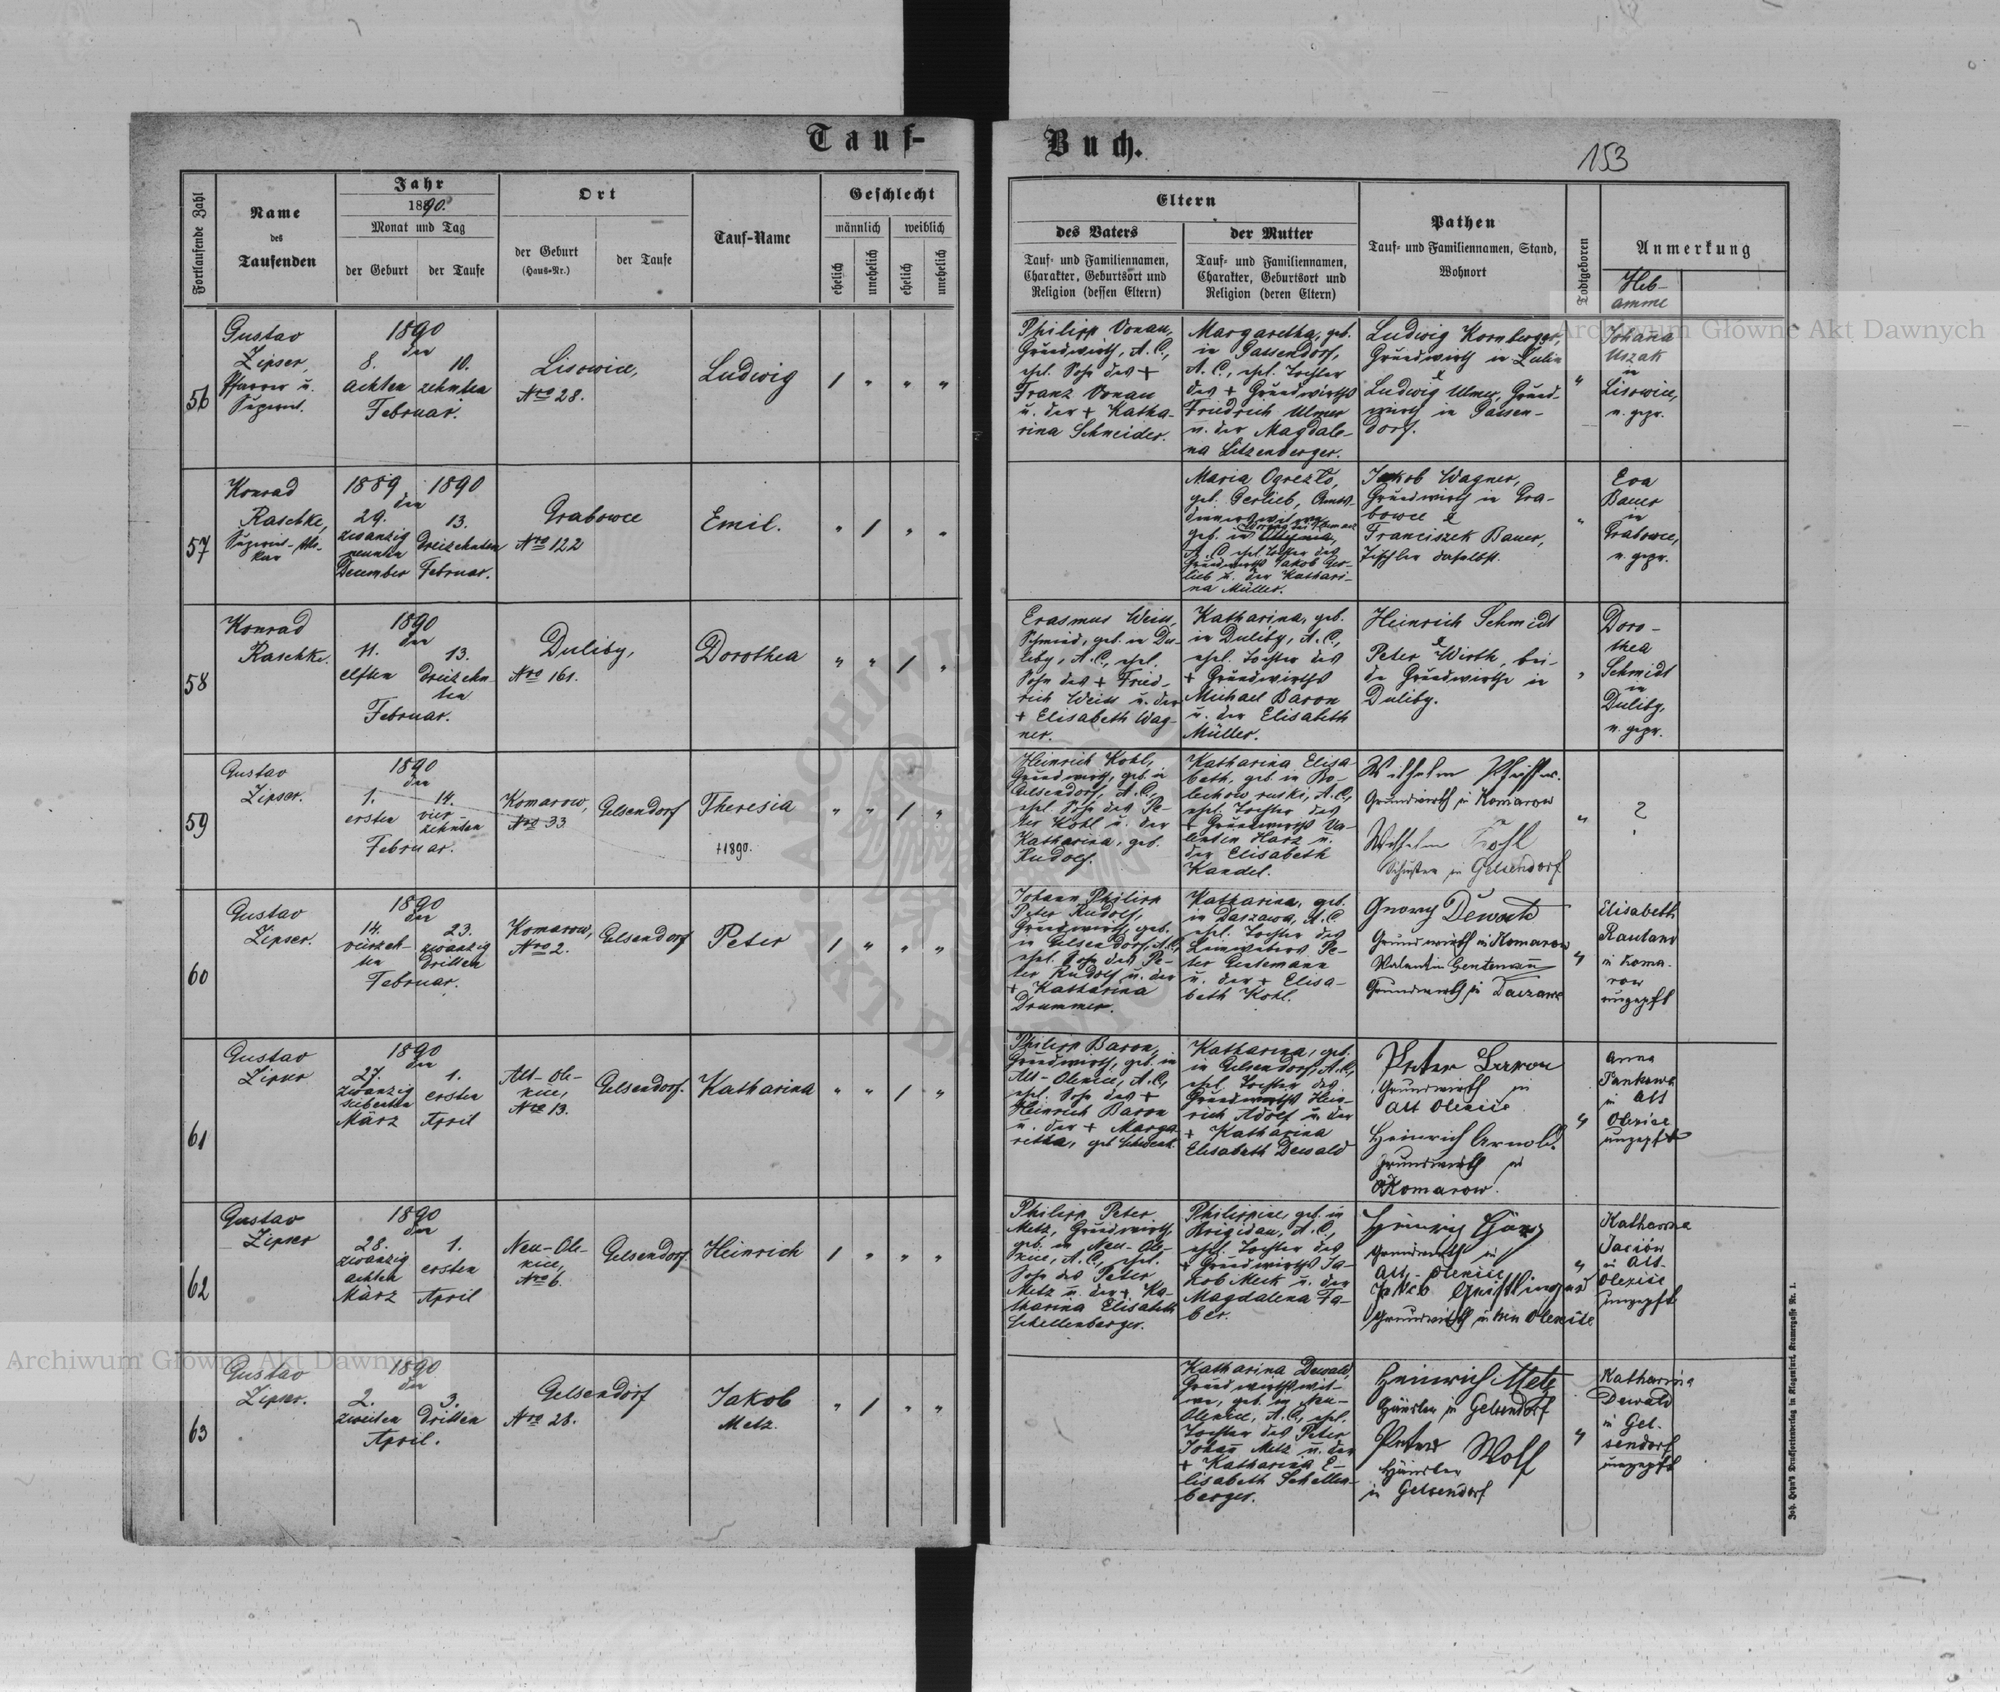 Tauf-
Buch.
153
Fortlaufende Zahl
Name
des
Taufenden
Jahr
1890.
Monat und Tag
der Geburt
der Taufe
Ort
der Geburt
(Haus-Nr.)
der Taufe
Tauf-Name
Geschlecht
männlich
weiblich
ehelich
unehelich
ehelich
unehelich
Eltern
des Vaters
Tauf- und Familiennamen,
Charakter, Geburtsort und
Religion (dessen Eltern)
der Mutter
Tauf- und Familiennamen,
Charakter, Geburtsort und
Religion (deren Eltern)
Pathen
Tauf- und Familiennamen, Stand,
Wohnort
Todtgeboren
Anmerkung
Heb-
amme
56
Gustav
Zipser,
Pfarrer u.
1890
den
8. 10.
achten zehnten
Februar.
Lisowice,
Nro 28.
Ludwig
/ " " "
Philipp Vonau,
Grundwirth, A. C.,
ehel. Sohn des +
Franz Vonau
u. der + Katha-
rina Schneider.
Margaretha, geb.
in Gassendorf,
A. C., ehel. Tochter
des + Grundwirths
Friedrich Ulmer
u. der Magdale-
na Litzenberger.
Ludwig Kornberger,
Grundwirth in
&
Ludwig Ulmer, Grund-
wirth in Gassen-
dorf.
"
Johanna
Uszak
in
Lisowice,
n. gepr.
57
Konrad
Raschke,
1889 1890
den
29. 13.
zwanzig
neunten dreizehnten
December Februar.
Grabowce
Nro 122
Emil.
" / " "
Maria
geb. Gerlieb,
geb. in
A. C., ehel. Tochter des
Grundwirths Jakob Ger-
lieb u. der Kathari-
na Müller.
Jakob Wagner,
Grundwirth in Gra-
bowce &
Franciszek Bauer,
Tischler daselbst.
"
Eva
Bauer
in
Grabowce,
n. gepr.
58
Konrad
Raschke.
1890
den
11. 13.
elften dreizehn-
ten
Februar.
Duliby,
Nro 161.
Dorothea
" " / "
Erasmus Weiss,
Schmied, geb. in Du-
liby, A. C., ehel.
Sohn des + Fried-
rich Weiss u. der
+ Elisabeth Wag-
ner.
Katharina, geb.
in Duliby, A. C.,
ehel. Tochter des
+ Grundwirths
Michael Baron
u. der Elisabeth
Müller.
Heinrich Schmidt
&
Peter Wirth, bei-
de Grundwirthe in
Duliby.
"
Doro-
thea
Schmidt
in
Duliby,
n. gepr.
59
Gustav
Zipser.
1890
den
1. 14.
ersten vier-
zehnten
Februar.
Komarow,
Nro 33
Gelsendorf
Theresia
+1890.
" " / "
Heinrich Kohl,
Grundwirth, geb. in
Gelsendorf, A. C.,
ehel. Sohn des Pe-
ter Kohl u. der
Katharina, geb.
Rudolf.
Katharina Elisa-
beth, geb. in Bo-
lechow ruski, A. C.,
ehel. Tochter des
+ Grundwirths Va-
lentin Harz u.
der Elisabeth
Kandel.
Wilhelm Pfeiffer.
Grundwirth in Komarow
Wilhelm Kohl
Schuster in Gelsendorf
"
?
60
Gustav
Zipser.
1890
den
14. 23.
vierzehn- zwanzig
ten dritten
Februar.
Komarow,
Nro 2.
Gelsendorf
Peter
/ " " "
Johann Philipp
Peter Rudolf,
Grundwirth, geb.
in Gelsendorf, A. C.,
ehel. Sohn des Pe-
ter Rudolf u. der
+ Katharina
Drummer.
Katharina, geb.
in Daszawa, A. C.
ehel. Tochter des
Leinwebers Pe-
ter Gentemann
u. der + Elisa-
beth Kohl.
Georg
Grundwirth in Komarow
Walentin Gentemann
Grundwirth in Daszawa
"
Elisabeth
in Koma-
row
ungeprft
61
Gustav
Zipser
1890
den
27. 1.
zwanzig ersten
siebenten
März April
Alt-Ole-
xice,
Nro 13.
Gelsendorf.
Katharina
" " / "
Philipp Baron,
Grundwirth, geb. in
Alt-Olexice, A. C.,
ehel. Sohn des +
Heinrich Baron
u. der + Marga-
retha, geb.
Katharina, geb.
in Gelsendorf, A. C.,
ehel. Tochter des
Grundwirths Hein-
rich Adolf u. der
+ Katharina
Elisabeth Dewald
Peter Baron
Grundwirth in
Alt Olexice
Heinrich Arnold.
Grundwirth in
Komarow.
"
Anna
in Alt
Olexice
ungeprft
62
Gustav
Zipser
1890
den
28. 1.
zwanzig
achten ersten
März April
Neu-Ole-
xice,
Nro 6.
Gelsendorf
Heinrich
/ " " "
Philipp Peter
Metz, Grundwirth,
geb. in Neu-Ole-
xice, A. C., ehel.
Sohn des Peter
Metz u. der + Ka-
tharina Elisabeth
Schellenberger.
Philippine, geb. in
Brigidau, A. C.,
ehel. Tochter des
+ Grundwirths Ja-
kob Meck u. der
Magdalena Fa-
ber.
Grundwirth in
Alt-Olexice
Grundwirth in Neu Olexice
"
Katharina
in Alt-
Olexice
ungeprft
63
Gustav
Zipser.
1890
den
2. 3.
zweiten dritten
April.
Gelsendorf
Nro 28.
Jakob
Metz.
" / " "
Katharina Dewald,
Grundwirthswit-
we, geb. in Neu-
Olexice, A. C., ehel.
Tochter des Peter
Johann Metz u. der
+ Katharina E-
lisabeth Schellen-
berger.
Heinrich Metz
Häusler in Gelsendorf
Peter Wolf
Häusler
in Gelsendorf
"
Katharina
Dewald
in Gel-
sendorf
ungeprft
Joh. Heyn's Drucksortenverlag in Klagenfurt, Kramergasse Nr. 1.
Archiwum Główne Akt Dawnych
Archiwum Główne Akt Dawnych